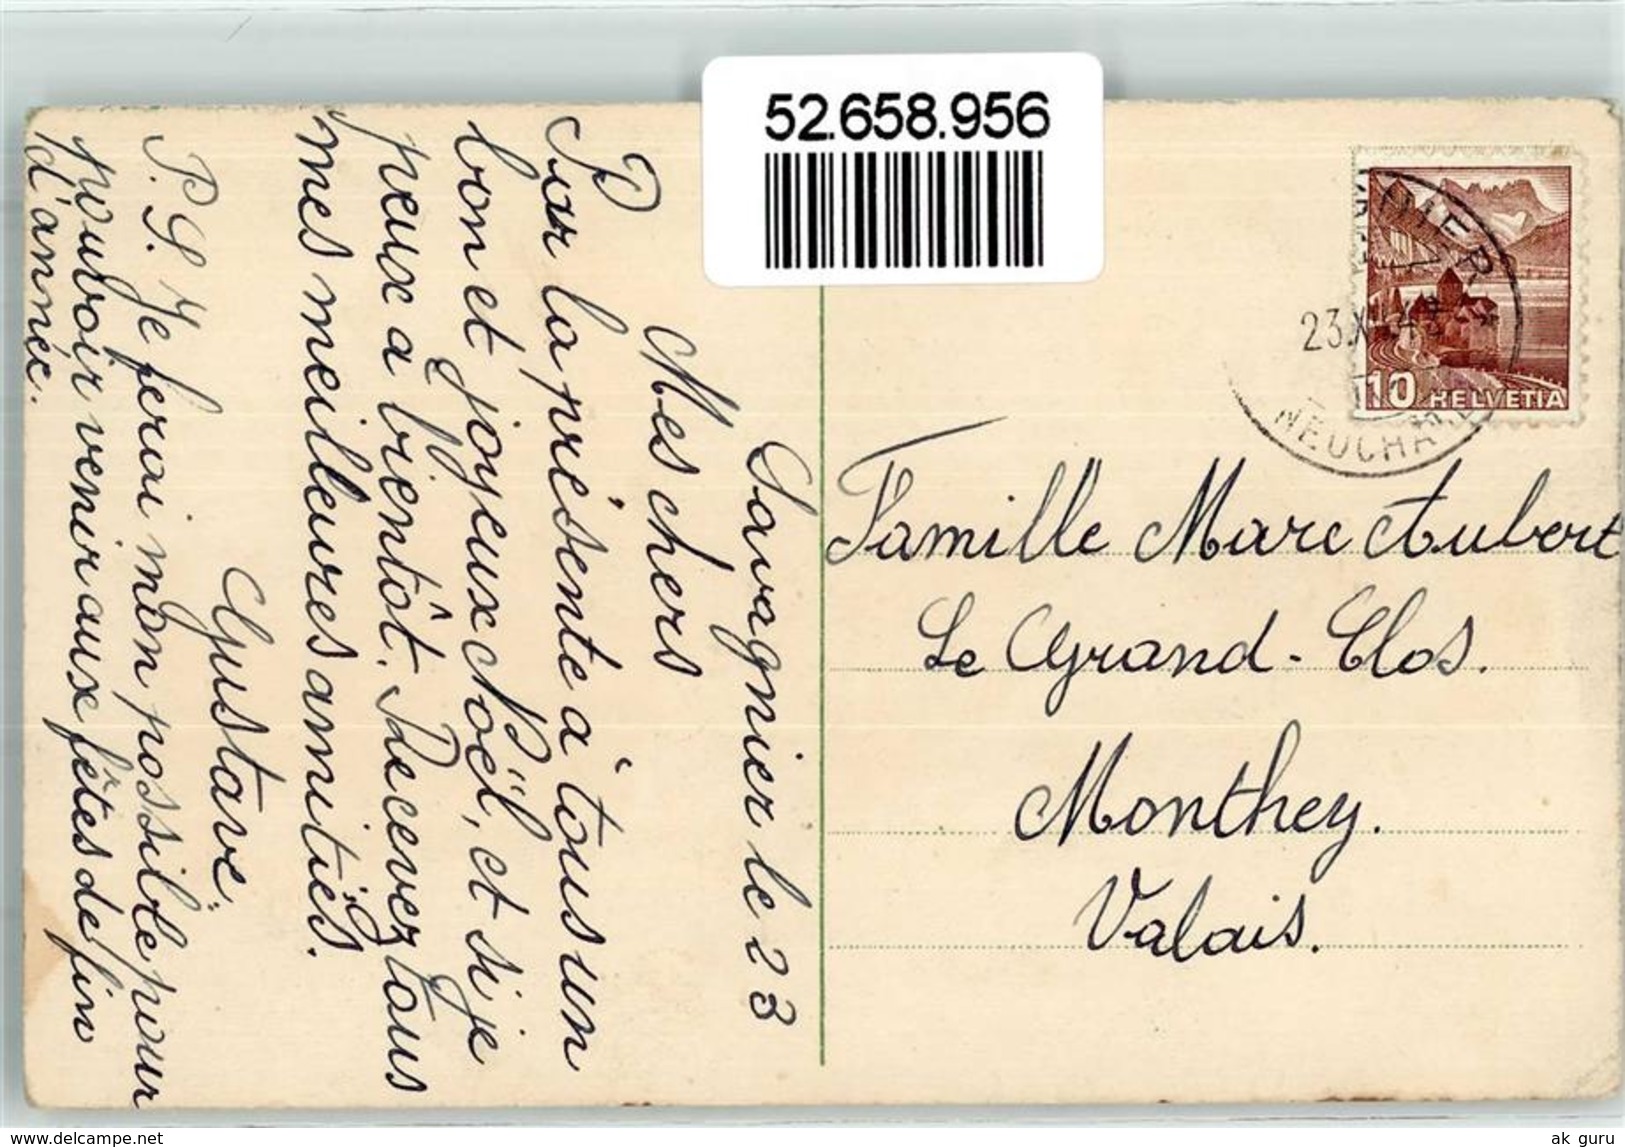 52.658.956
Savagnier le 23
Mes chers
P
Par la présente à tous un
bon et joyeux Noël, et si je
peux a bientôt. Recevez tous
mes meilleures amitiés.
Gustave.
P.S. Je ferai mon possible pour
pouvoir venir aux fêtes de fin
d'année.
10 HELVETIA
23.X
Famille Marc Aubert
Le Grand-Clos.
Monthey.
Valais.
www.delcampe.net
ak_guru